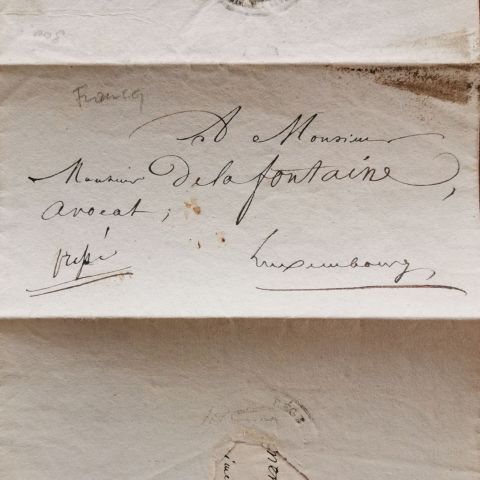 Francq
A Monsieur
Monsieur De la fontaine,
avocat;
Luxembourg